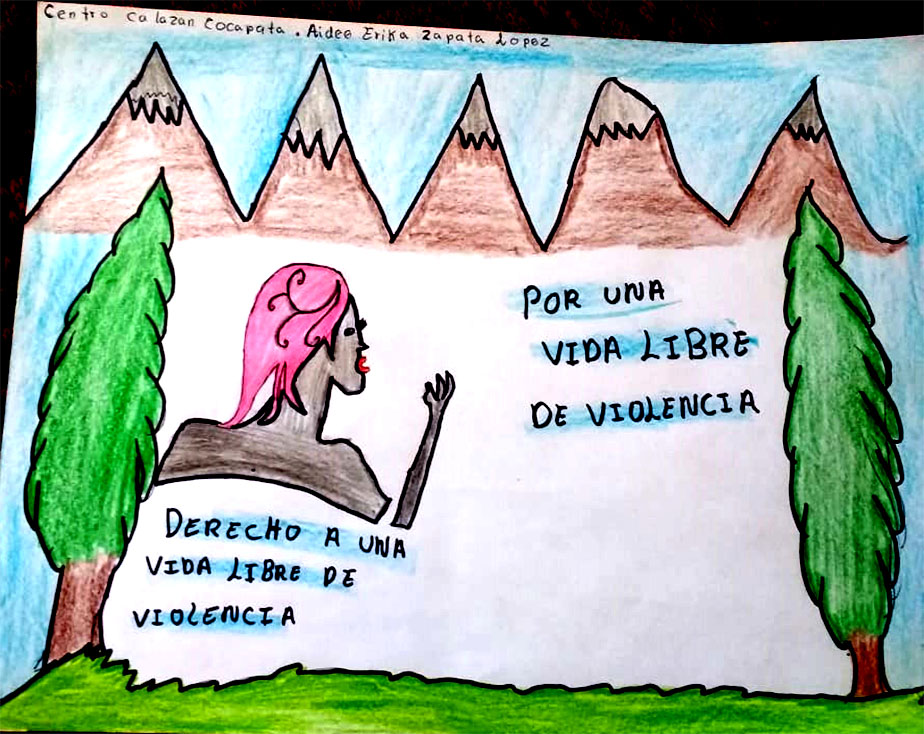 Centro Calazan Cocapata. Aidee Erika Zapata Lopez
POR UNA
VIDA LIBRE
DE VIOLENCIA
DERECHO A UNA
VIDA LIBRE DE
VIOLENCIA